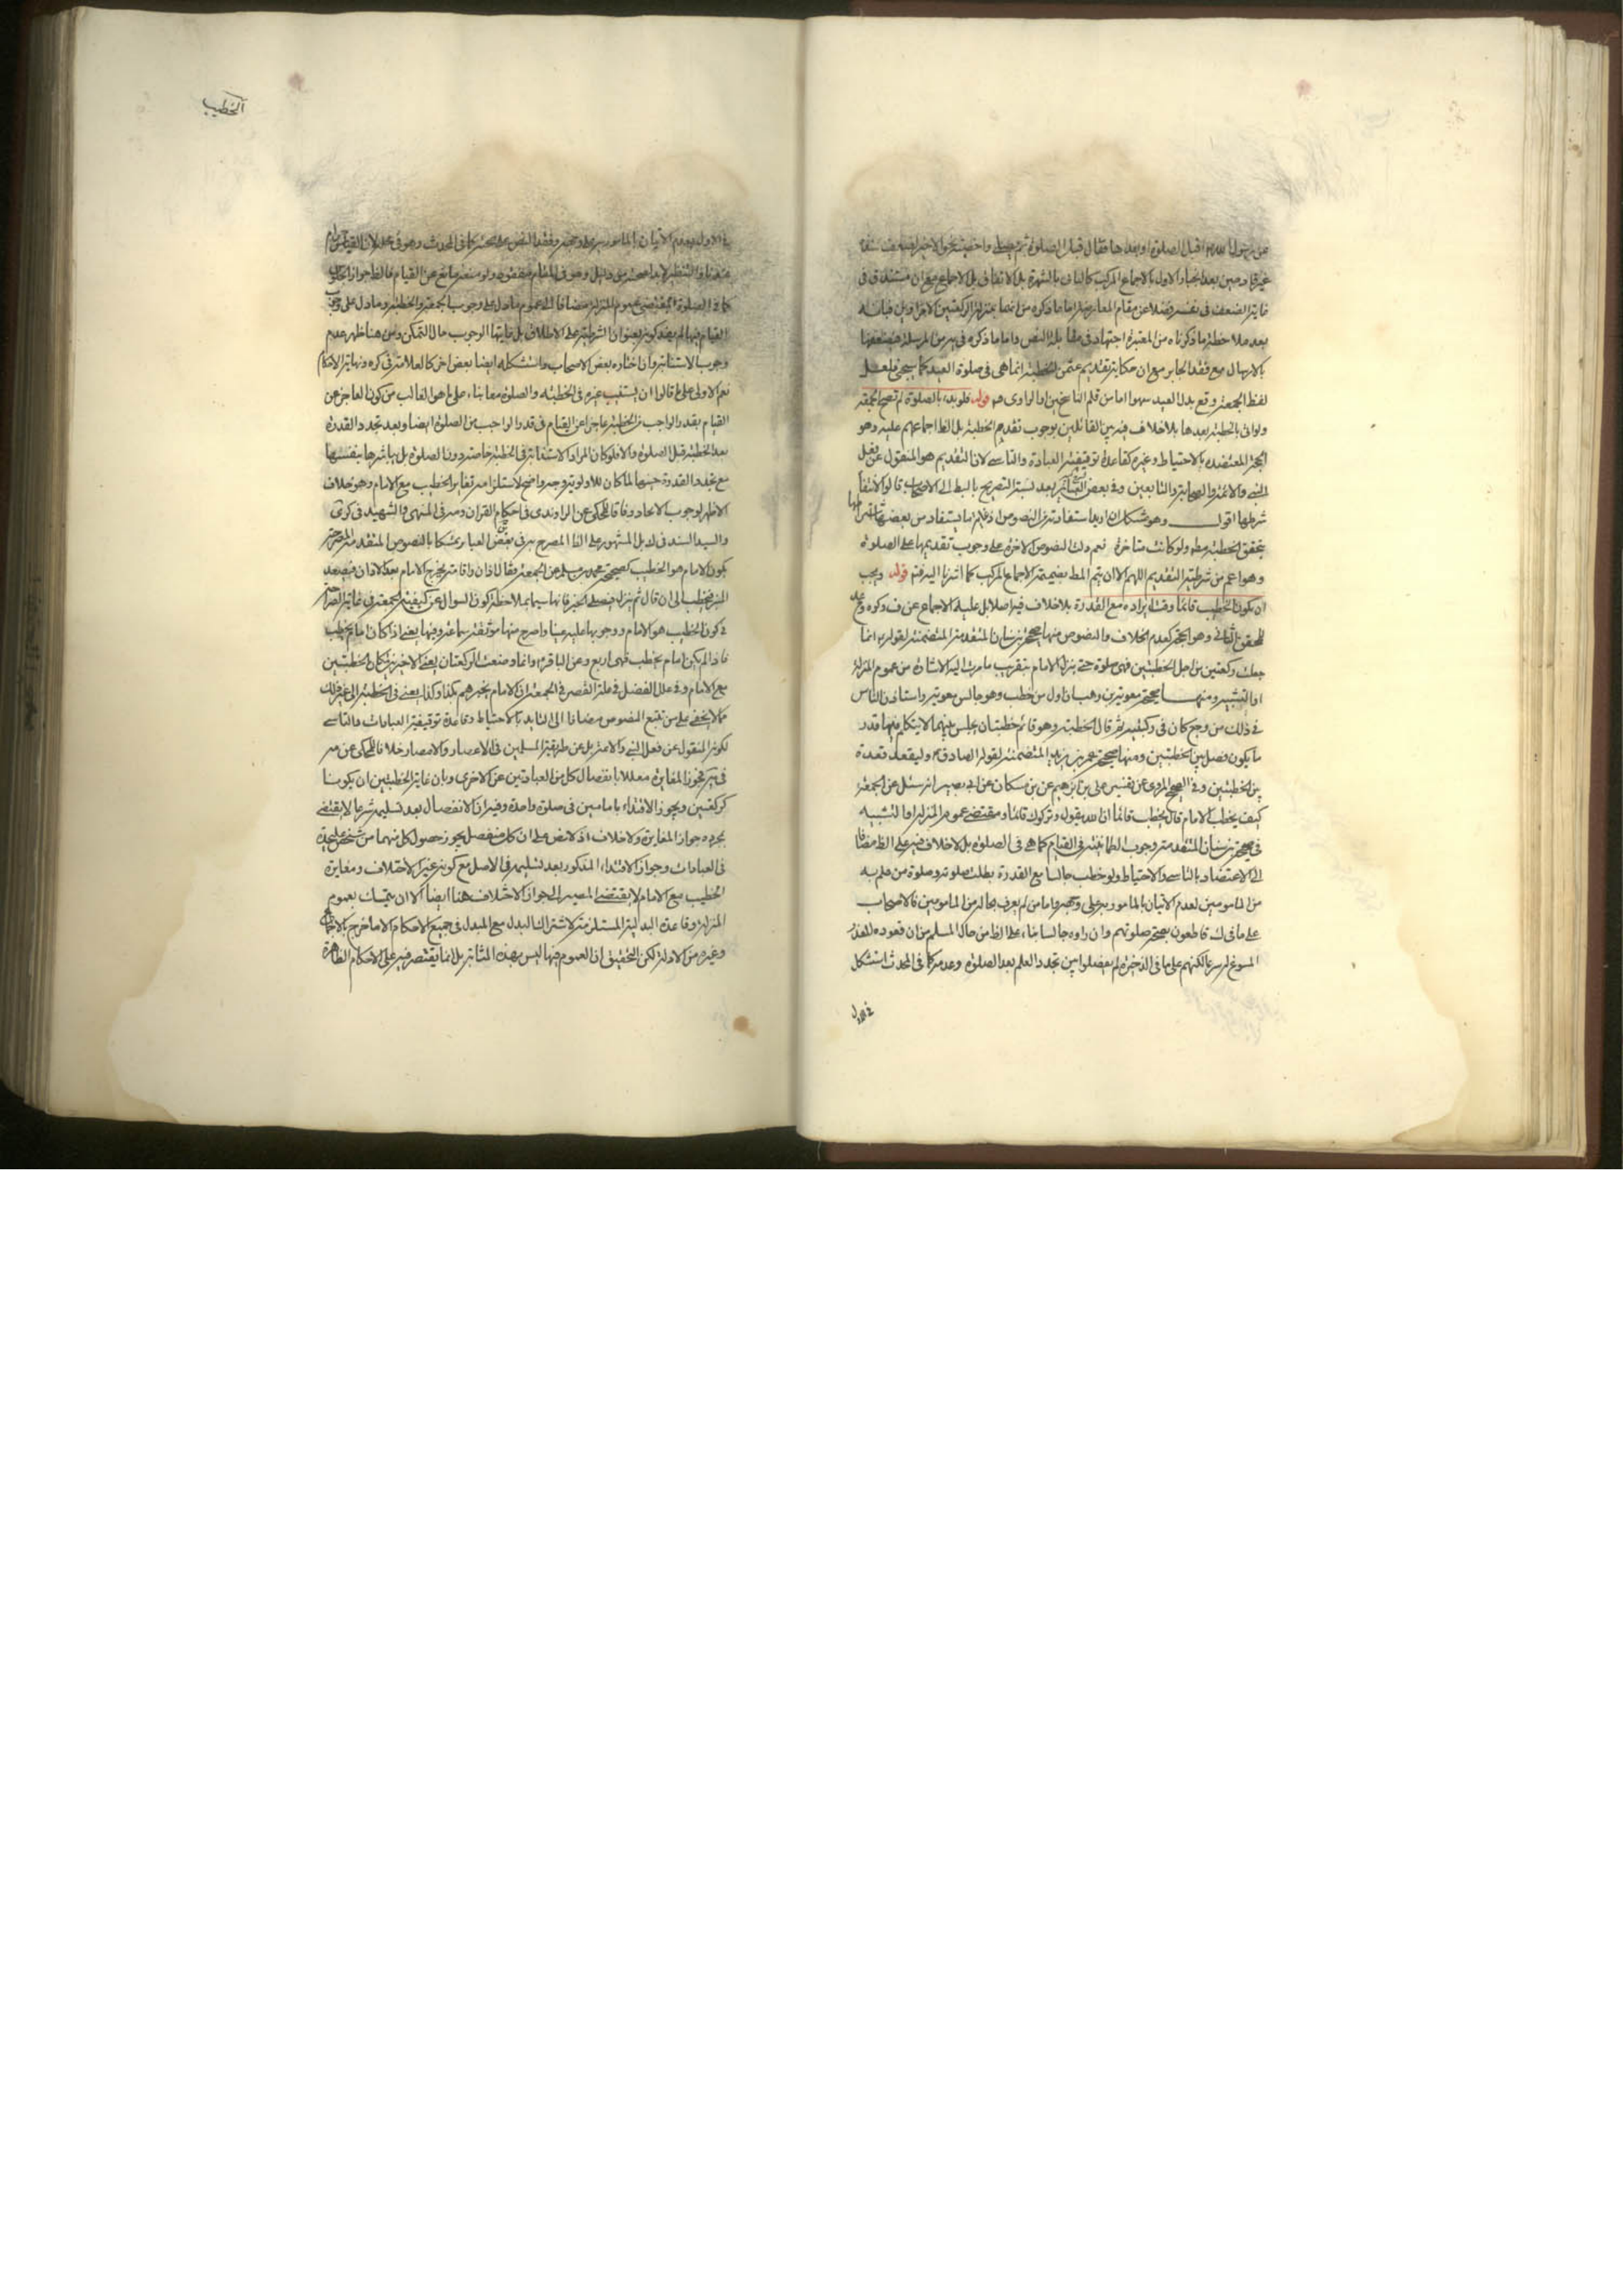 عن رسول الله اقبل الصلوة او بعدها فقال قبل الصلوة ثم يصلي
غير قادحين بعد انجبار الاول بالاجماع المركب كالثاني بالشهرة بل الاتفاق بل الاجماع مع ان مستند ق في
غاية الضعف في نفسه فضلا عن مقام المعارضة اما ما ذكره من انهما بمنزلة الركعتين الاخراوين فبانه
بعد ملاحظة ما ذكرناه من المعتبرة اجتهاد في مقابلة النص واما ما ذكره في يه من المرسلة فضعفها
بالارسال مع فقد الجابر مع ان حكاية تقديم عثمن الخطبة انما هي في صلوة العيد كما سيجئ فلعل
لفظ الجمعة وقع بدل العيد سهوا اما من قلم الناسخين او الراوي قوله فلو بدء بالصلوة لم تصح الجمعة
ولو اتى بالخطبة بعدها بلا خلاف فيه بين القائلين بوجوب تقديم الخطبة بل الظ اجماعهم عليه وهو
الحجة المعتضدة بالاحتياط وغيره كقاعدة توقيفية العبادة والتاسي لان التقديم هو المنقول عن فعل
النبي والائمة والصحابة والتابعين وفي بعض بعد نسبة التصريح بالبط الى الاصحاب قالوا لانتفاء
شرطها اقول وهو مشكل ان اريد استفادته من النصوص اذ غاية ما يستفاد من بعضها
بتحقق الخطبة مط ولو كانت متاخرة نعم دلت النصوص الاخرة على وجوب تقديمها على الصلوة
وهو اعم من شرطية التقديم اللهم الا ان يتم المط بضميمة الاجماع المركب كما اشرنا اليه فت قوله ويجب
ان يكون الخطيب قائما وقت ايراده مع القدرة بلا خلاف فيه اصلا بل عليه الاجماع عن ف وكره وعد
المحقق الثاني وهو الحجة كعدم الخلاف والنصوص منها صحيحة بن سنان المتقدمة المتضمنة لقوله انما
جعلت ركعتين من اجل الخطبتين فهي صلوة حتى ينزل الامام بتقريب ما مرت اليه الاشارة من عموم المنزلة
او التشبيه ومنها صحيحة معوية بن وهب ان اول من خطب وهو جالس معوية واستاذن الناس
في ذلك من وجع كان في ركبتيه ثم قال الخطبة وهو قائم خطبتان يجلس بينهما لا يتكلم فيها قدر
ما يكون فصل بين الخطبتين ومنها صحيحة عمر بن يزيد المتضمنة لقوله الصادق وليقعد قعدة
بين الخطبتين وفي الصحيح المروي عن تفسير علي بن ابرهيم عن بن مسكان عن ابي بصير انه سئل عن الجمعة
كيف يخطب الامام قال يخطب قائما ان الله يقول وتركوك قائما ومقتضى عموم المنزلة او التشبيه
في صحيحة بن سنان المتقدمة وجوب الطمانينة في القيام كما هي في الصلوة بل لا خلاف فيه على الظ مضافا
الى الاعتضاد بالتاسي والاحتياط ولو خطب جالسا مع القدرة بطلت صلوته وصلوة من علم به
من المامومين لعدم الاتيان بالمامور به على وجهه واما من لم يعرف بحاله من المامومين فالاصحاب
على ما في ك قاطعون بصحة صلوتهم وان راوه جالسا بناء على الظ من حال المسلم من ان قعوده للعذر
المسوغ له شرعا لكنهم على ما في الذخيرة لم يفصلوا بين تجدد العلم بعد الصلوة وعدمه كما في المحدث استشكل
في الاول
الخطيب
في الاول بعدم الاتيان بالمامور به على وجهه وفقد النص على الصحة كما في المحدث وهو في محله لان القياس حرام
كما في الصلوة لمقتضى عموم المنزلة مضافا الى عموم ما دل على وجوب الجمعة والخطبة وما دل على وجوب
القيام فيها لم يفد كونه بعنوان الشرطية على الاطلاق بل غايتها الوجوب حال التمكن ومن هنا ظهر عدم
وجوب الاستنابة وان اختاره بعض الاصحاب واستشكله ايضا بعض اخر كالعلامة في كره ونهاية الاحكام
نعم الاولى على ما قالوا ان يستنيب غيره في الخطبة والصلوة معا بناء على ما هو الغالب من كون العاجز عن
القيام بقدر الواجب من الخطبة عاجزا عن القيام في قدر الواجب من الصلوة ايضا وبعد تجدد القدرة
بعد الخطبة قبل الصلوة والا فلو كان المراد الاستنابة في الخطبة خاصة دون الصلوة بل يباشرها بنفسها
مع تجدد القدرة حينها لما كان للاولوية وجه واضح لاستلزامه تغاير الخطيب مع الامام وهو خلاف
الاظهر لوجوب الاتحاد وفاقا للمحكي عن الراوندي في احكام القران ومه في المنتهى والشهيد في كرى
والسيد السند في ك بل المشهور على الظ المصرح به في بعض العباير تمسكا بالنصوص المتقدمة المصرحة
بكون الامام هو الخطيب كصحيحة محمد بن مسلم عن الجمعة فقال اذان واقامة يخرج الامام بعد الاذان فيصعد
المنبر فيخطب الى ان قال ثم ينزل فيصلي الخبر فانها سيما بملاحظة كون السوال عن كيفية الجمعة في غاية الصراحة
في كون الخطيب هو الامام ووجوبها عليه عينا واصرح منها موثقة سماعة وفيها يعني اذا كان امام يخطب
فاذا لم يكن امام يخطب فهي اربع وعن الباقر وانما وضعت الركعتان يعني الاخيرتين لمكان الخطبتين
مع الامام وفي علل الفضل في علة القصر في الجمعة ان الامام يخبرهم بكذا وكذا يعني في الخطبة الى غير ذلك
مما لا يخفى على من تتبع النصوص مضافا الى التاييد بالاحتياط وقاعدة توقيفية العبادات والتاسي
لكونه المنقول عن فعل النبي والائمة بل عن طريقة المسلمين في الاعصار والامصار خلافا للمحكي عن مه
في يه فجوز المغايرة معللا بانفصال كل من العبادتين عن الاخرى وبان غاية الخطبتين ان يكونا
كركعتين ويجوز الاقتداء بامامين في صلوة واحدة وفيه ان الانفصال بعد تسليمه شرعا لا يقتضي
بمجرده جواز المغايرة ولا خلاف اذ لا نص على ان كل منفصل يجوز حصول كل منهما من شخص عليحدة
في العبادات وجواز الاقتداء المذكور بعد تسليمه في الاصل مع كونه غير الاختلاف ومغايرة
الخطيب مع الامام لا يقتضي المصير الى جواز الاختلاف هنا ايضا الا ان يتمسك بعموم
المنزلة وقاعدة البدلية المستلزمة لاشتراك البدل مع المبدل في جميع الاحكام الا ما خرج بالاجماع
وغيره من الادلة لكن التحقيق ان العموم فيها ليس بهذه المثابة بل انما يقتصر فيه على الاحكام الظاهرة